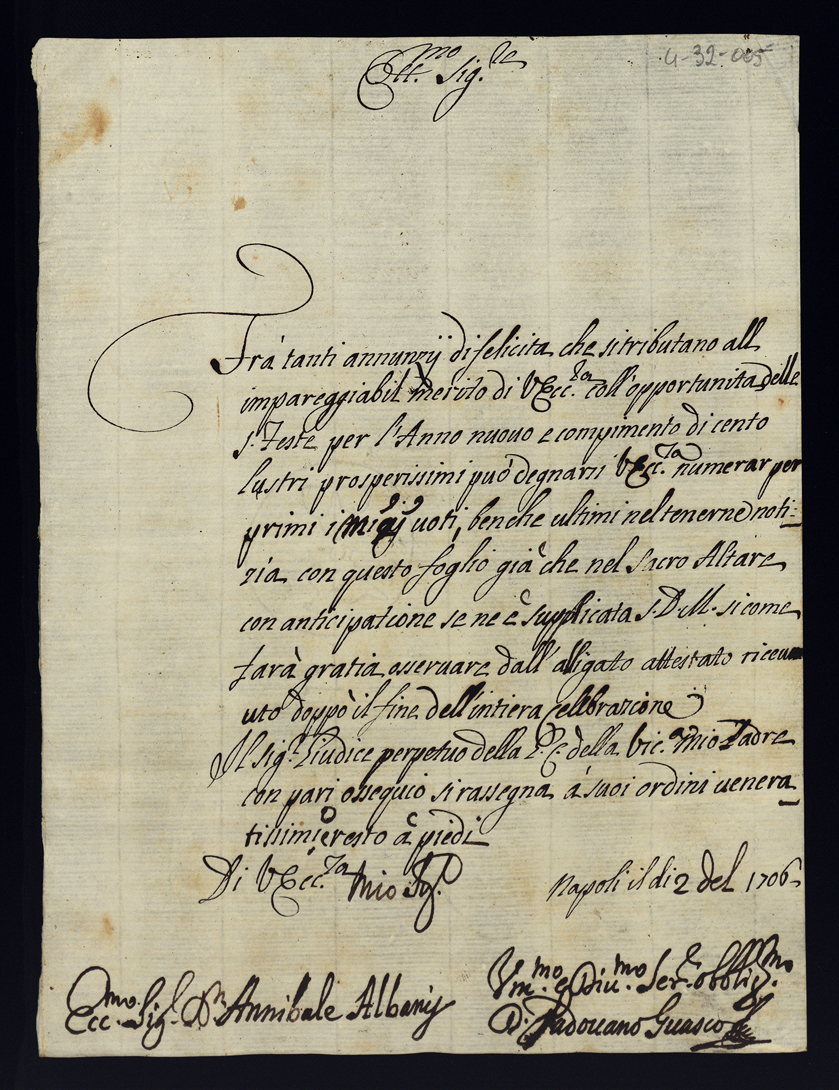 4-32-005
Ecc.mo Sig.re
Frà tanti annunzÿ di felicita che si tributano all
impareggiabil merito di V.Ecc.za coll'opportunita delle
s. Feste per l'Anno nuovo e compimento di cento
lustri prosperissimi può degnarsi V.Ecc.za numerar per
primi i miei uoti, benche ultimi nel tenerne noti-
zia con questo foglio già che nel sacro Altare
con anticipatione se ne è supplicata S.D.M. si come
farà gratia osseruare dall'alligato attestato riceu
uto doppò il fine dell'intiera Celebrazione
Il sig.r Giudice perpetuo della G.C. della Vic.a mio Padre
con pari ossequio si rassegna à suoi ordini uenera
tissimi, e resto à piedi
Di V.Ecc.za Mio Sig.r Napoli il di 2 del 1706
Vm.mo e Diu.mo Ser.e obblig.mo
Ecc.mo Sig.r Dn Annibale Albany
D. Padouano Guasco